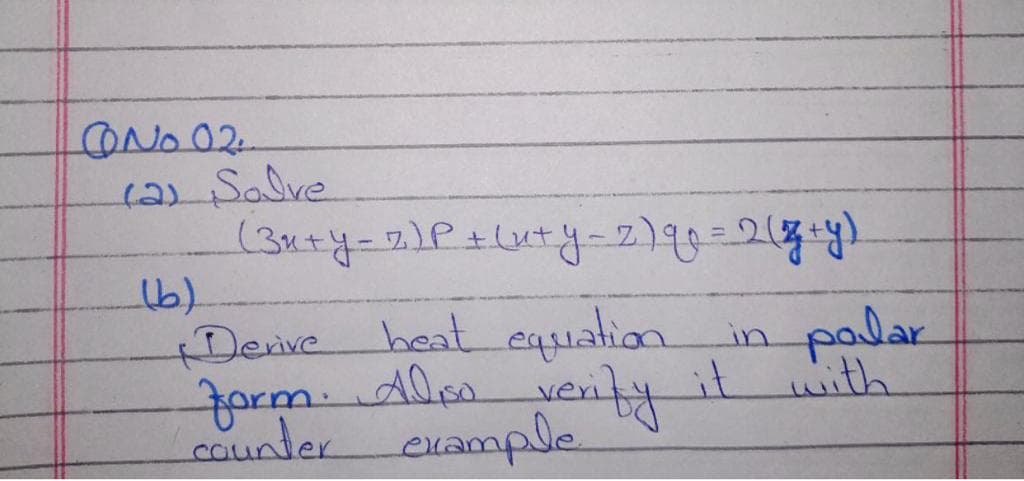 QNo 02:
(a) Solve
(3x+y-z)p + (x+y-z)q = 2(z+y)
(b)
Derive heat equation in polar
form. Also verify it with
counter example.